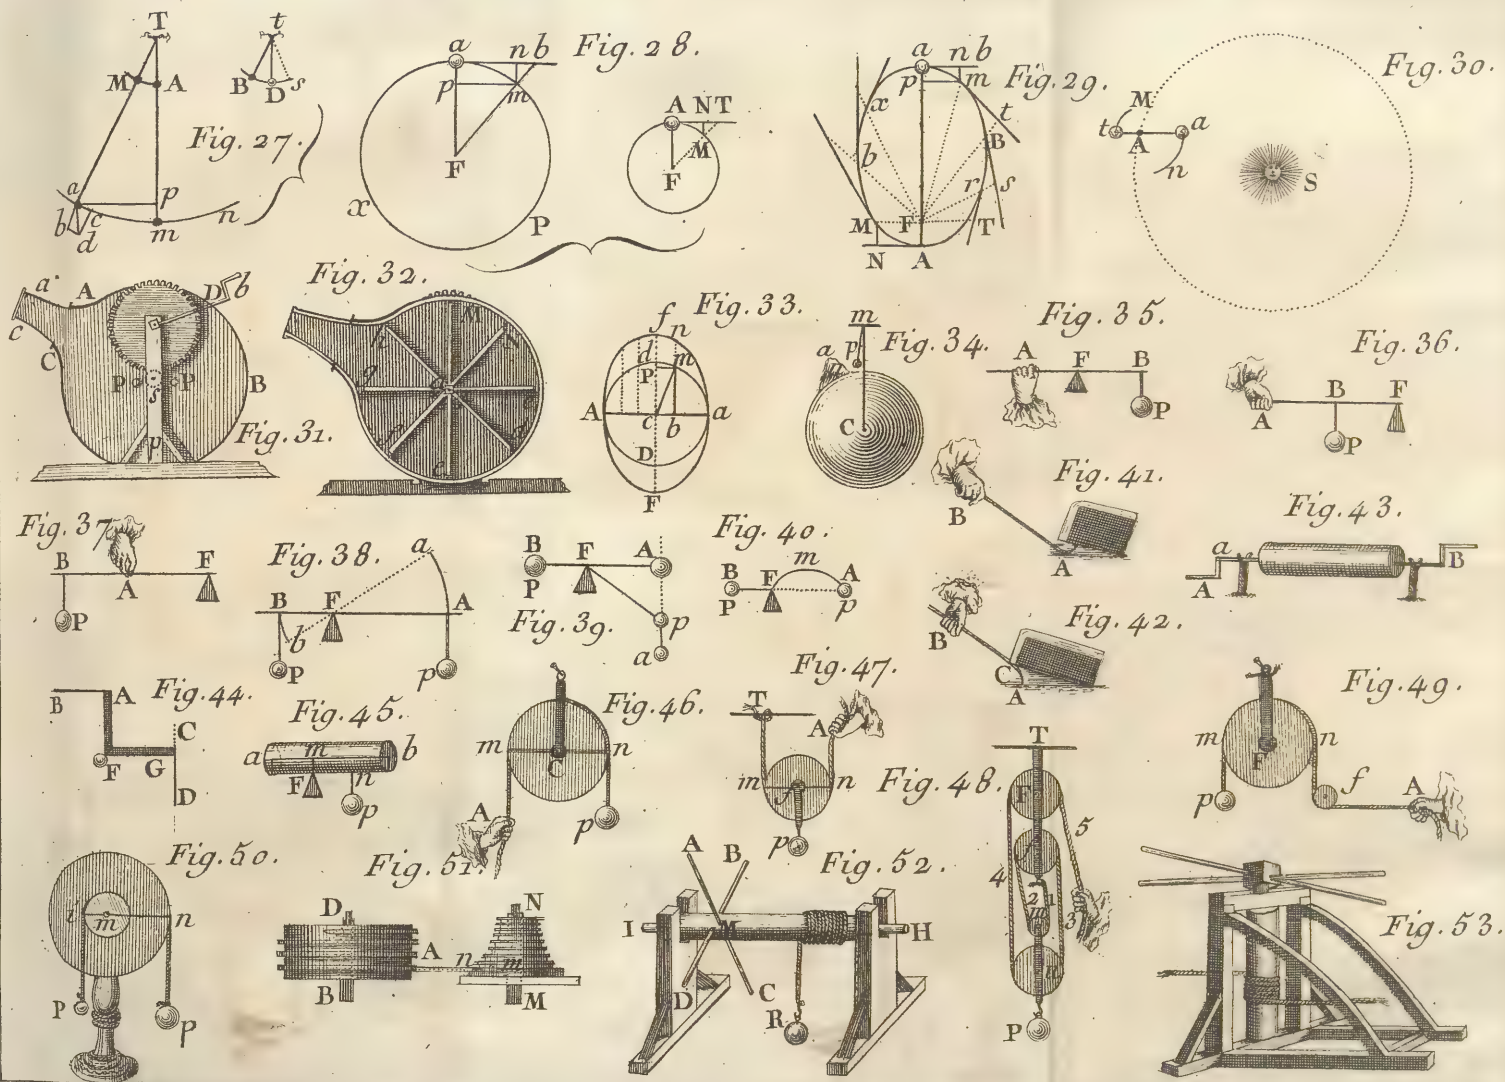 T
t
M A
B D s
Fig. 27.
a
p
b c
n
d
m
a n b
Fig. 28.
p
m
F
x
P
A N T
M
F
a n b
p m
Fig. 29.
x
t
b
B
r s
M F T
N A
Fig. 30.
M
t a
A
n
S
a A
D b
c
C
P P
s
B
p
Fig. 31.
Fig. 32.
M
h N
g a e
f d
c
f
n
Fig. 33.
d
P m
A c b a
D
F
m
a p
Fig. 34.
C
Fig. 35.
A F B
P
Fig. 36.
B F
A
P
Fig. 37
B F
A
P
Fig. 38.
a
B F A
b
P p
B F A
P
Fig. 39.
p
a
Fig. 40.
m
B F A
P p
Fig. 41.
B
A
Fig. 42.
B
C
A
Fig. 43.
a B
A
Fig. 44.
B A
C
F G
D
Fig. 45.
a m b
F n
p
Fig. 46.
m n
C
A
p
Fig. 47.
T A
m n
f
p
Fig. 48.
T
F
5
f
4
2 1
m
3
n
P
Fig. 49.
m n
F
f
p A
Fig. 50.
i m n
P p
Fig. 51.
D N
A
n m
B M
Fig. 52.
A B
I M H
D C
R
Fig. 53.